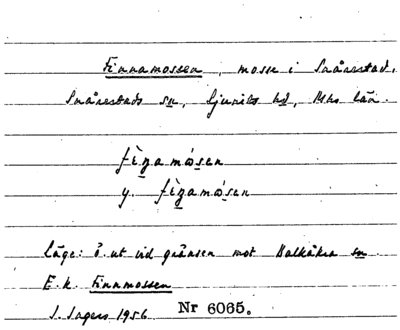 Finnamossen, mosse i Snårestad,
Snårestads sn, Ljunits hd, Mhs län.
fìnamòsen
y. fìnamòsen
Läge: ö. ut vid gränsen mot Balkåkra sn
E.k. Finnmossen
I. Ingers 1956 Nr 6065.